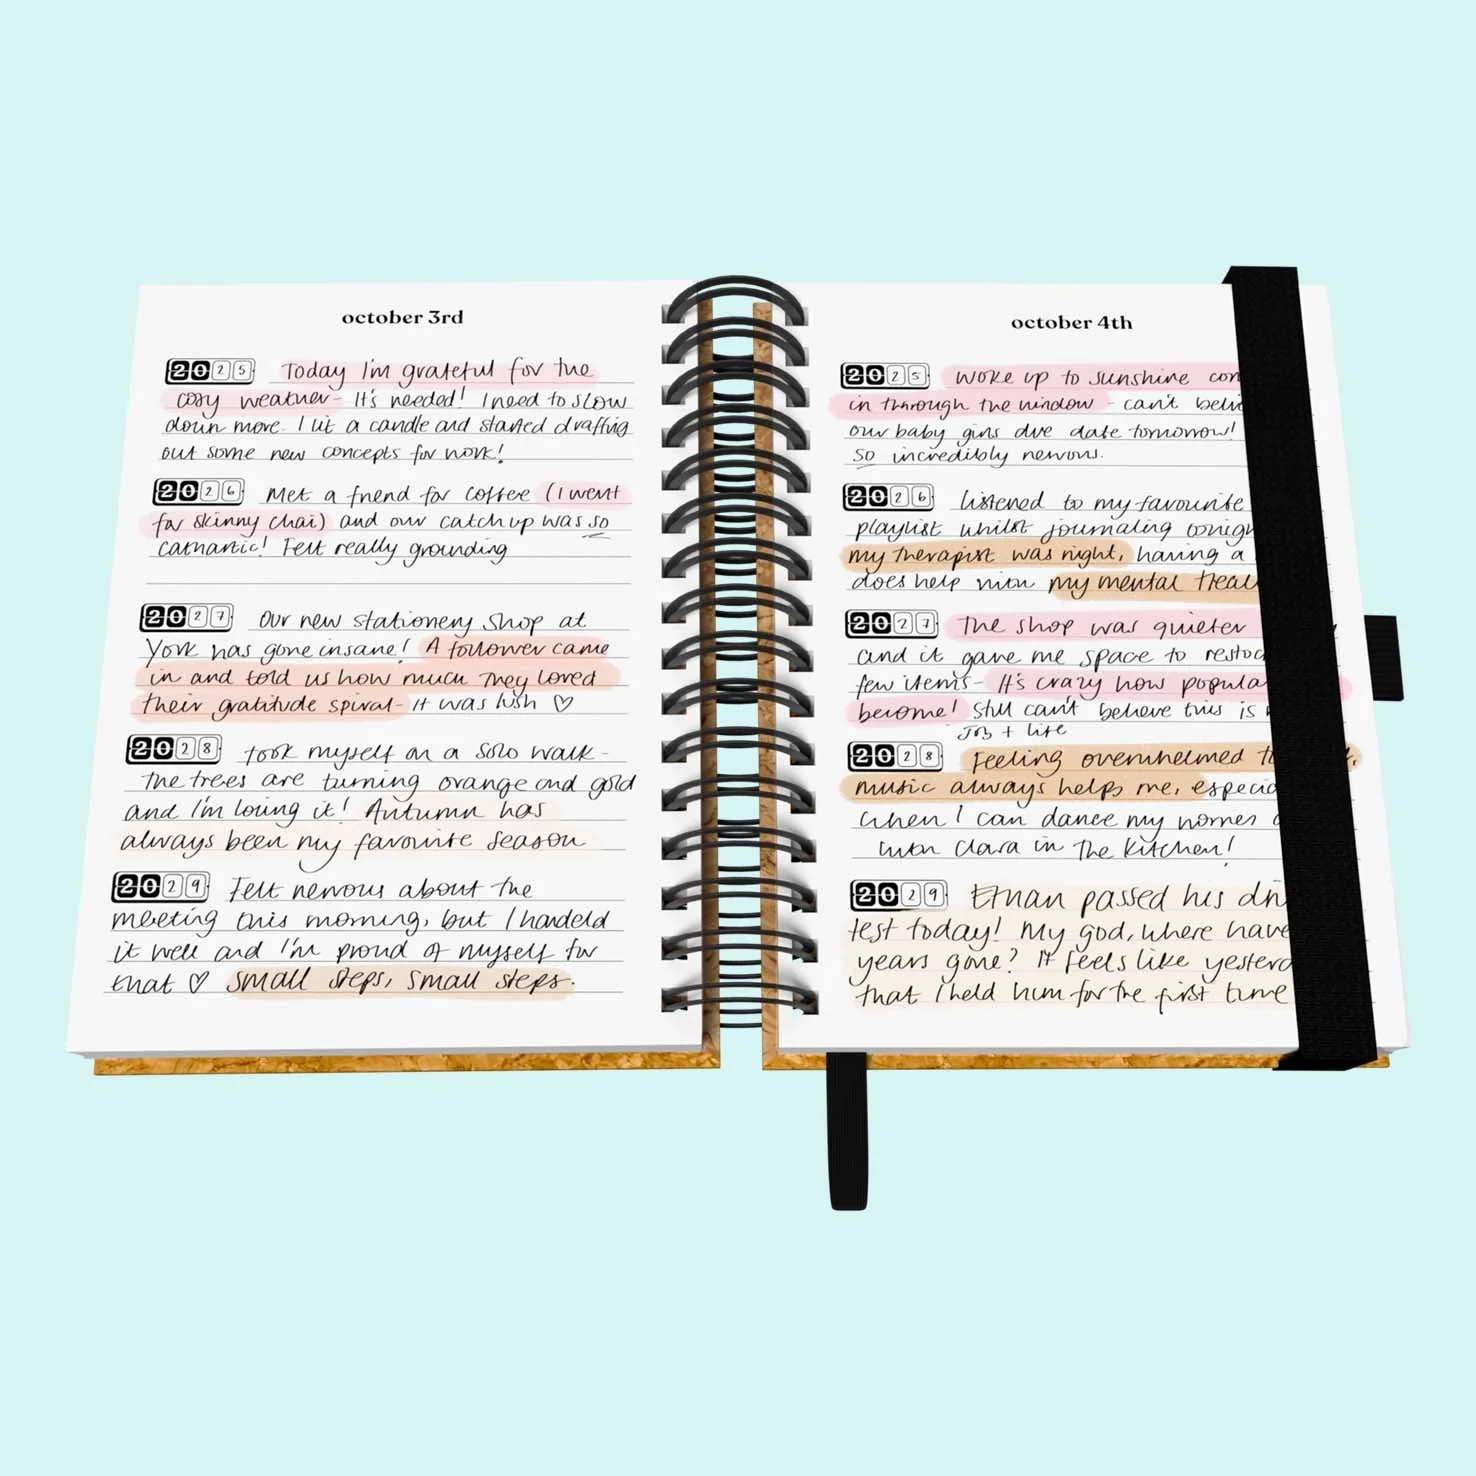 october 3rd
2025 Today I'm grateful for the
cosy weather - It's needed! I need to slow
down more. I lit a candle and started drafting
out some new concepts for work!
2026 Met a friend for coffee (I went
for skinny chai) and our catch up was so
cathartic! Felt really grounding
2027 Our new stationery shop at
York has gone insane! A follower came
in and told us how much they loved
their gratitude spiral - it was lush ♡
2028 Took myself on a solo walk -
The trees are turning orange and gold
and I'm loving it! Autumn has
always been my favourite season
2029 Felt nervous about the
meeting this morning, but I handeld
it well and I'm proud of myself for
that ♡ small steps, small steps.
october 4th
2025 Woke up to sunshine
in through the window - can't
our baby girls due date tomorrow!
so incredibly nervous.
2026 Listened to my favourite
playlist whilst journaling
my therapist was right, having a
does help with my mental
2027 The shop was quieter
and it gave me space to
few items - It's crazy how
become! Still can't believe this is
Job + life
2028 Feeling overwhelmed
music always helps me,
when I can dance my worries
with Clara in the kitchen!
2029 Ethan passed his
test today! My god, where have
years gone? It feels like
that I held him for the first time